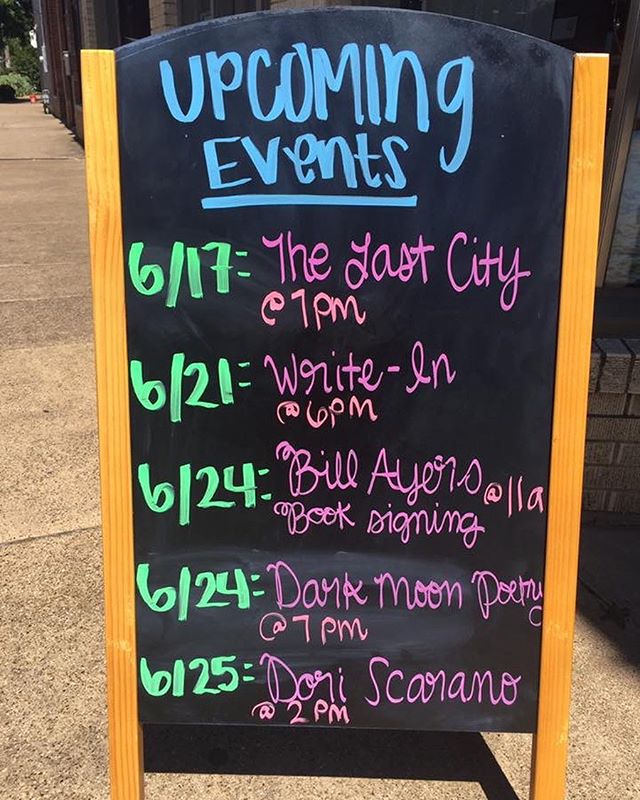 UPCOMING
EVENTS
6/17: The Last City
@ 7pm
6/21: Write-In
@ 6PM
6/24: Bill Ayers @ 11a
Book signing
6/24: Dark Moon Poetry
@ 7 PM
6/25: Dori Scarano
@ 2 PM